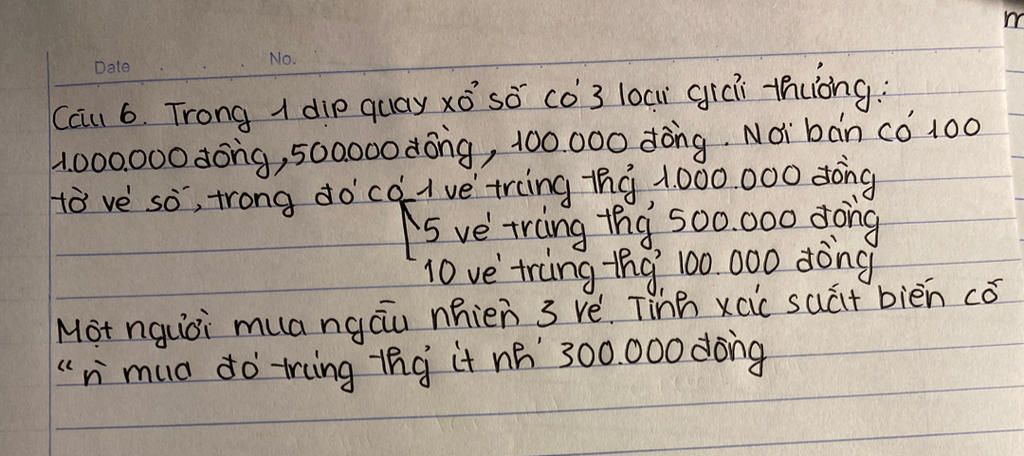 m
Date No.
Câu 6. Trong 1 dịp quay xổ số có 3 loại giải thưởng:
1.000.000 đồng, 500.000 đồng, 100.000 đồng. Nơi bán có 100
tờ vé số, trong đó có 1 vé trúng thg̉ 1.000.000 đồng
5 vé trúng thg̉ 500.000 đồng
10 vé trúng thg̉ 100.000 đồng
Một người mua ngẫu nhiên 3 vé. Tính xác suất biến cố
"n̂̀ mua đó trúng thg̉ ít nh́ 300.000 đồng